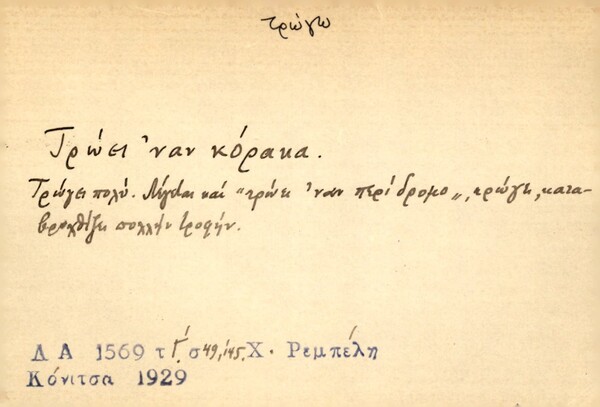 τρώγω
Τρώει 'ναν κόρακα.
Τρώγει πολύ. Λέγεται καί "τρώει 'ναν περίδρομο", τρώγει, κατα-
βροχθίζει πολλήν τροφήν.
Λ Α 1569 τ Γ΄ σ 49, 145. Χ. Ρεμπέλη
Κόνιτσα 1929